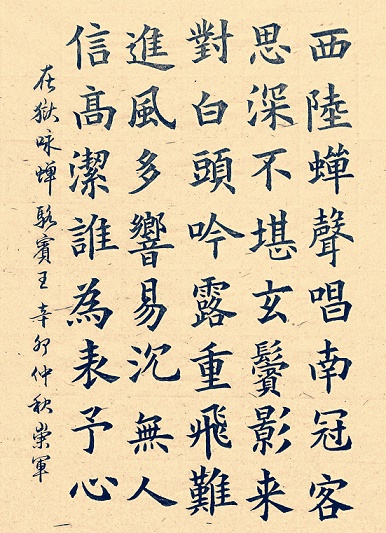 西陸蟬聲唱南冠客
思深不堪玄鬢影来
對白頭吟露重飛難
進風多響易沉無人
信髙潔誰為表予心
在獄咏蟬駱賓王辛卯仲秋崇軍